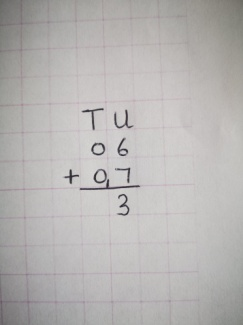 T U
0 6
+ 0,7
3